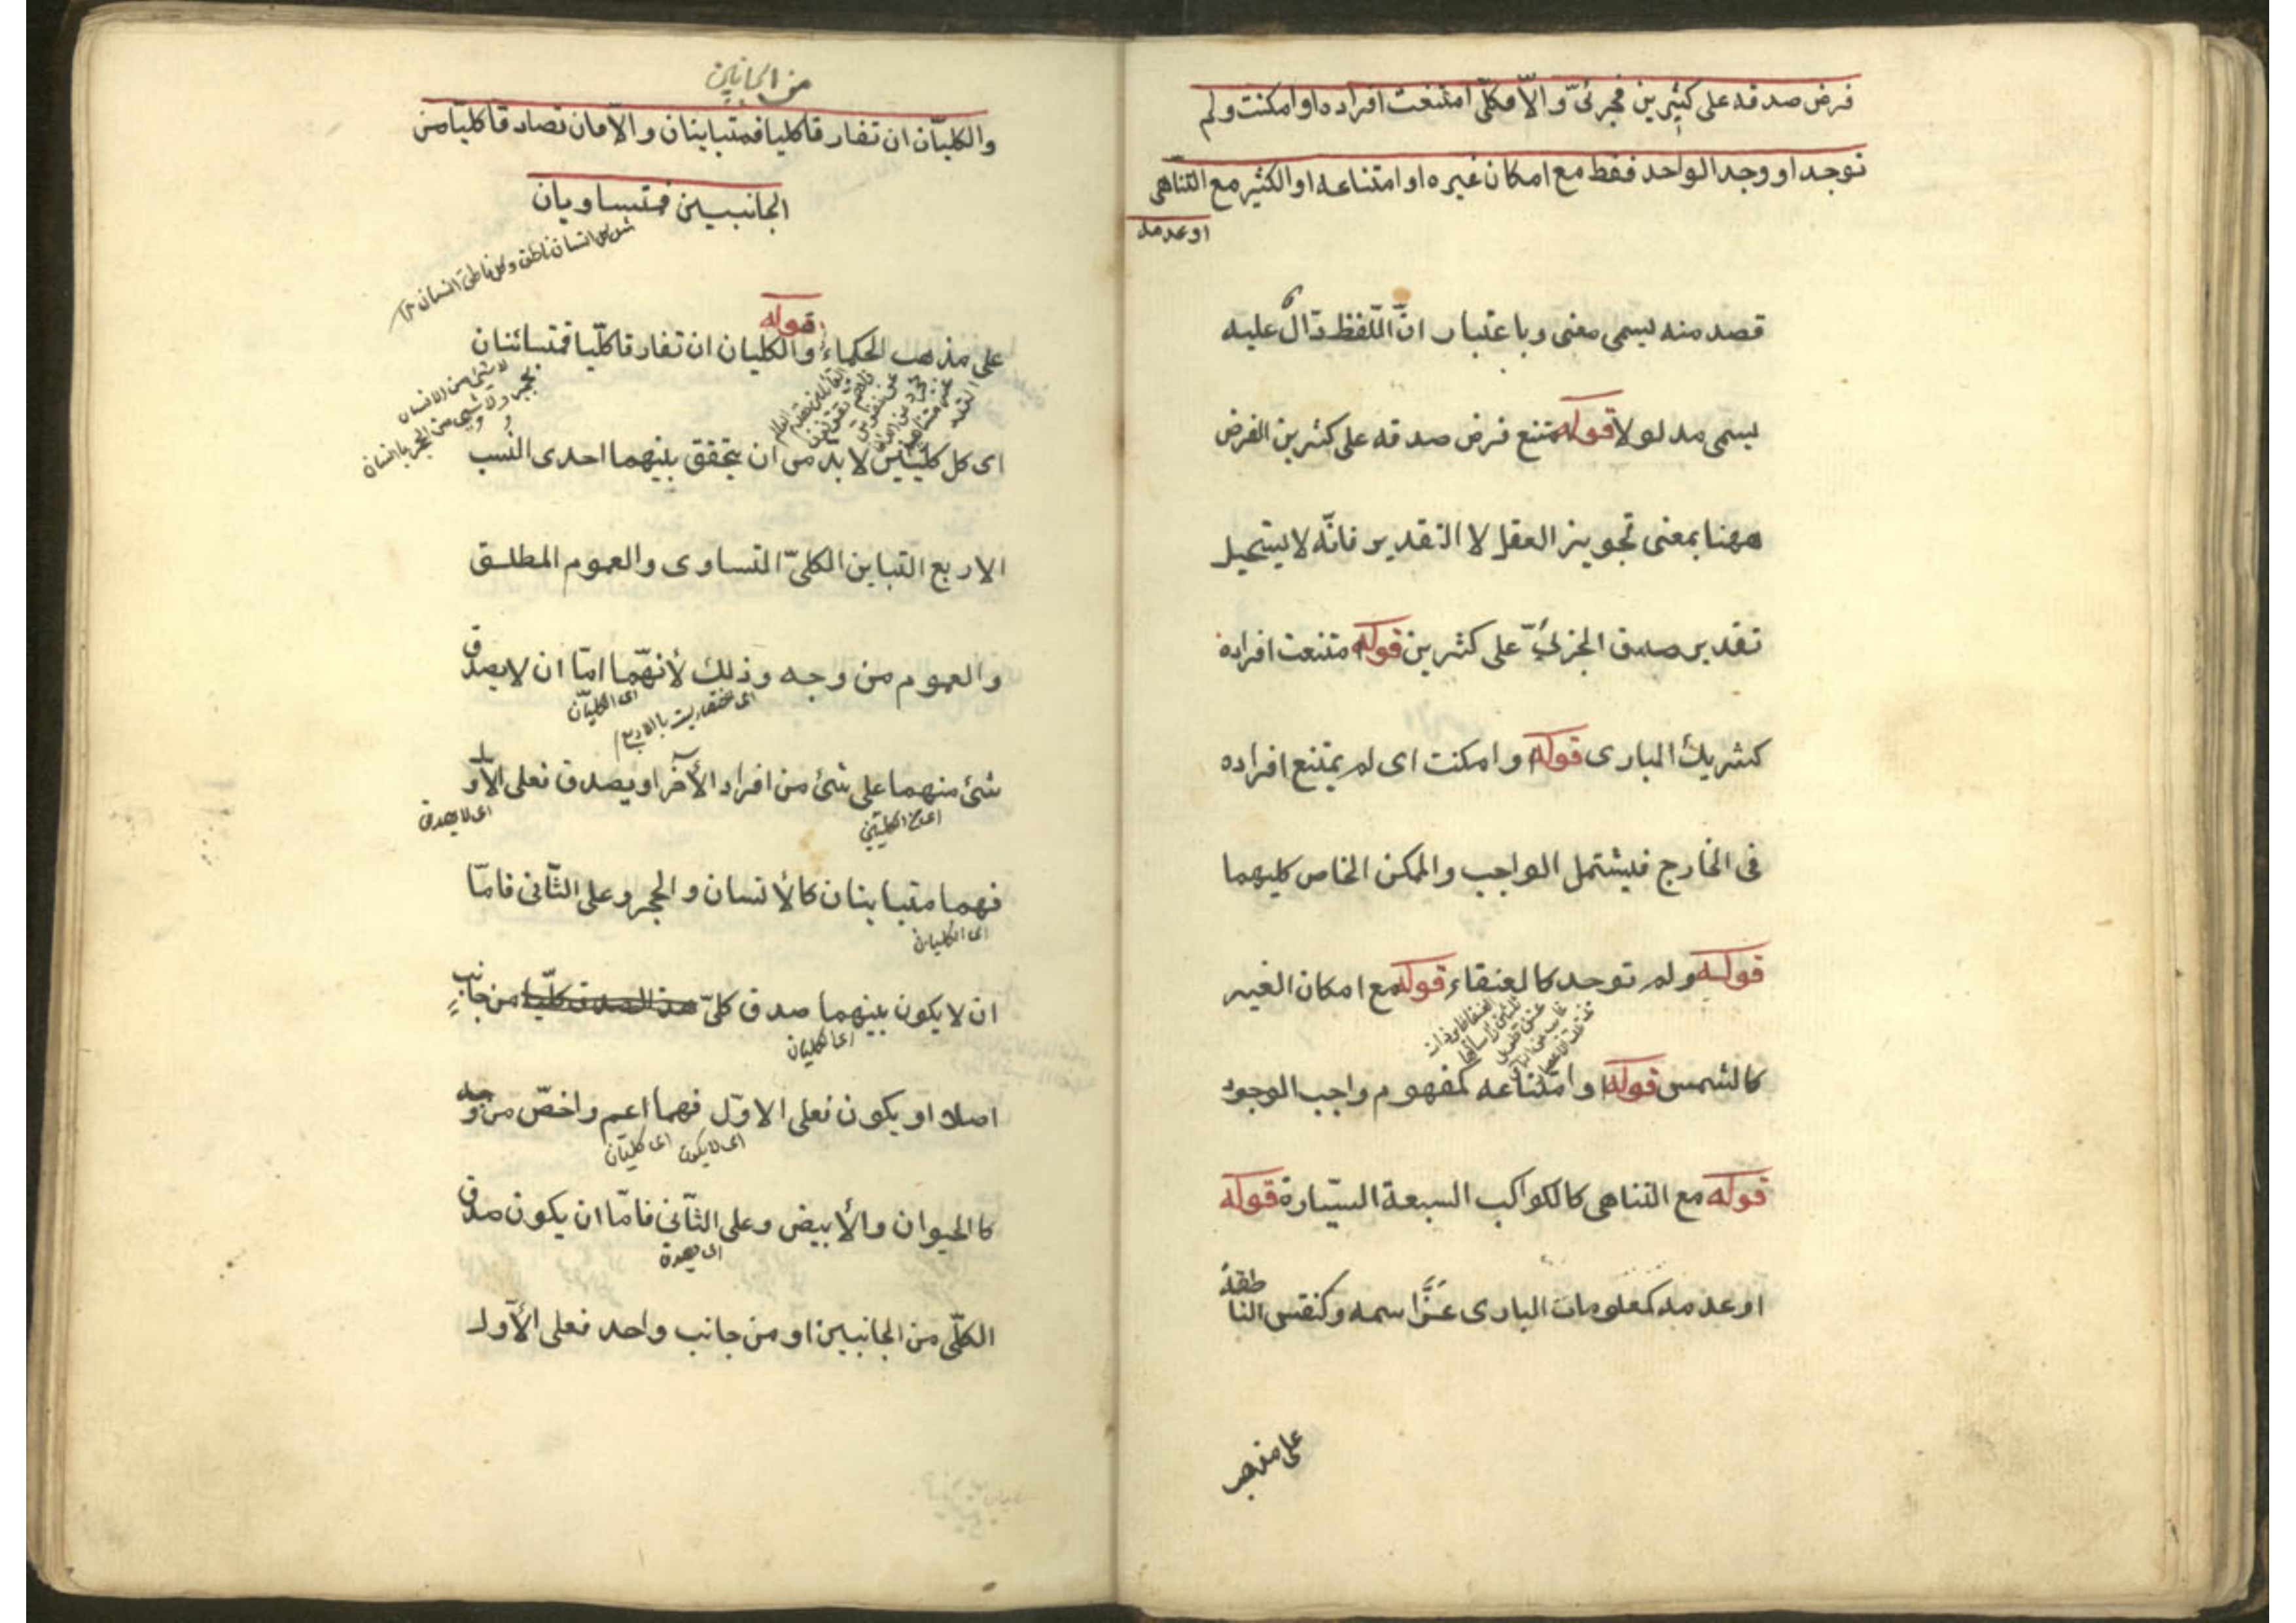 فرض صدقه على كثيرين فجزئيّ والّا فكلّى امتنعت افراده او امكنت ولم
توجد او وجد الواحد فقط مع امكان غيره او امتناعه او الكثير مع التناهى
او عدمه
قصد منه يسمى معنى وباعتبار انّ اللّفظ دّال عليه
يسمى مدلولا قوله متنع فرض صدقه على كثرين الفرض
ههنا بمعنى تجويز العقل لا التقدير فانّه لا يستحيل
تقدير صدق الجزئىّ على كثرين قوله امتنعت افراده
كشريك البارى قوله او امكنت اى لم يمتنع افراده
فى الخارج فيشتمل الواجب والممكن الخاص كليهما
قوله ولم توجد كالعنقاء قوله مع امكان الغير
كالشمس قوله او امتناعه كمفهوم واجب الوجود
قوله مع التناهى كالكواكب السبعة السيّارة قوله
او عدمه كمعلومات البارى عزّ اسمه وكنفس الناطقة
على مذهب
من الجانبين
والكليّان ان تفارقا كليا فمتباينان والّا فان تصادقا كليّا من
الجانبيين فمتساويان
انسان ناطق وكل ناطق انسان
قوله
على مذهب الحكماء والكليان ان تفارقا كلّيا فمتبائنان
لا شئ من الانسان
بحجر ولا شئ من الحجر بانسان
اى كل كليّين لا بد من ان يتحقق بينهما احدى النّسب
الاربع التباين الكلىّ التساوى والعموم المطلق
والعموم من وجه وذلك لأنهّما امّا ان لا يصدق
اى الكليّان
شئ منهما على شئ من افراد الأخر او يصدق فعلى الأول
اى لا يصدق
فهما متباينان كالأنسان والحجر وعلى الثّانى فامّا
اى الكليان
ان لا يكون بينهما صدق كلىّ من جانب
اى الكليان
اصلا او يكون فعلى الاوّل فهما اعم واخصّ من وجه
اى لا يكون اى كليّان
كالحيوان والأبيض وعلى الثّانى فامّا ان يكون صدق
الكلّى من الجانبين او من جانب واحد فعلى الأول